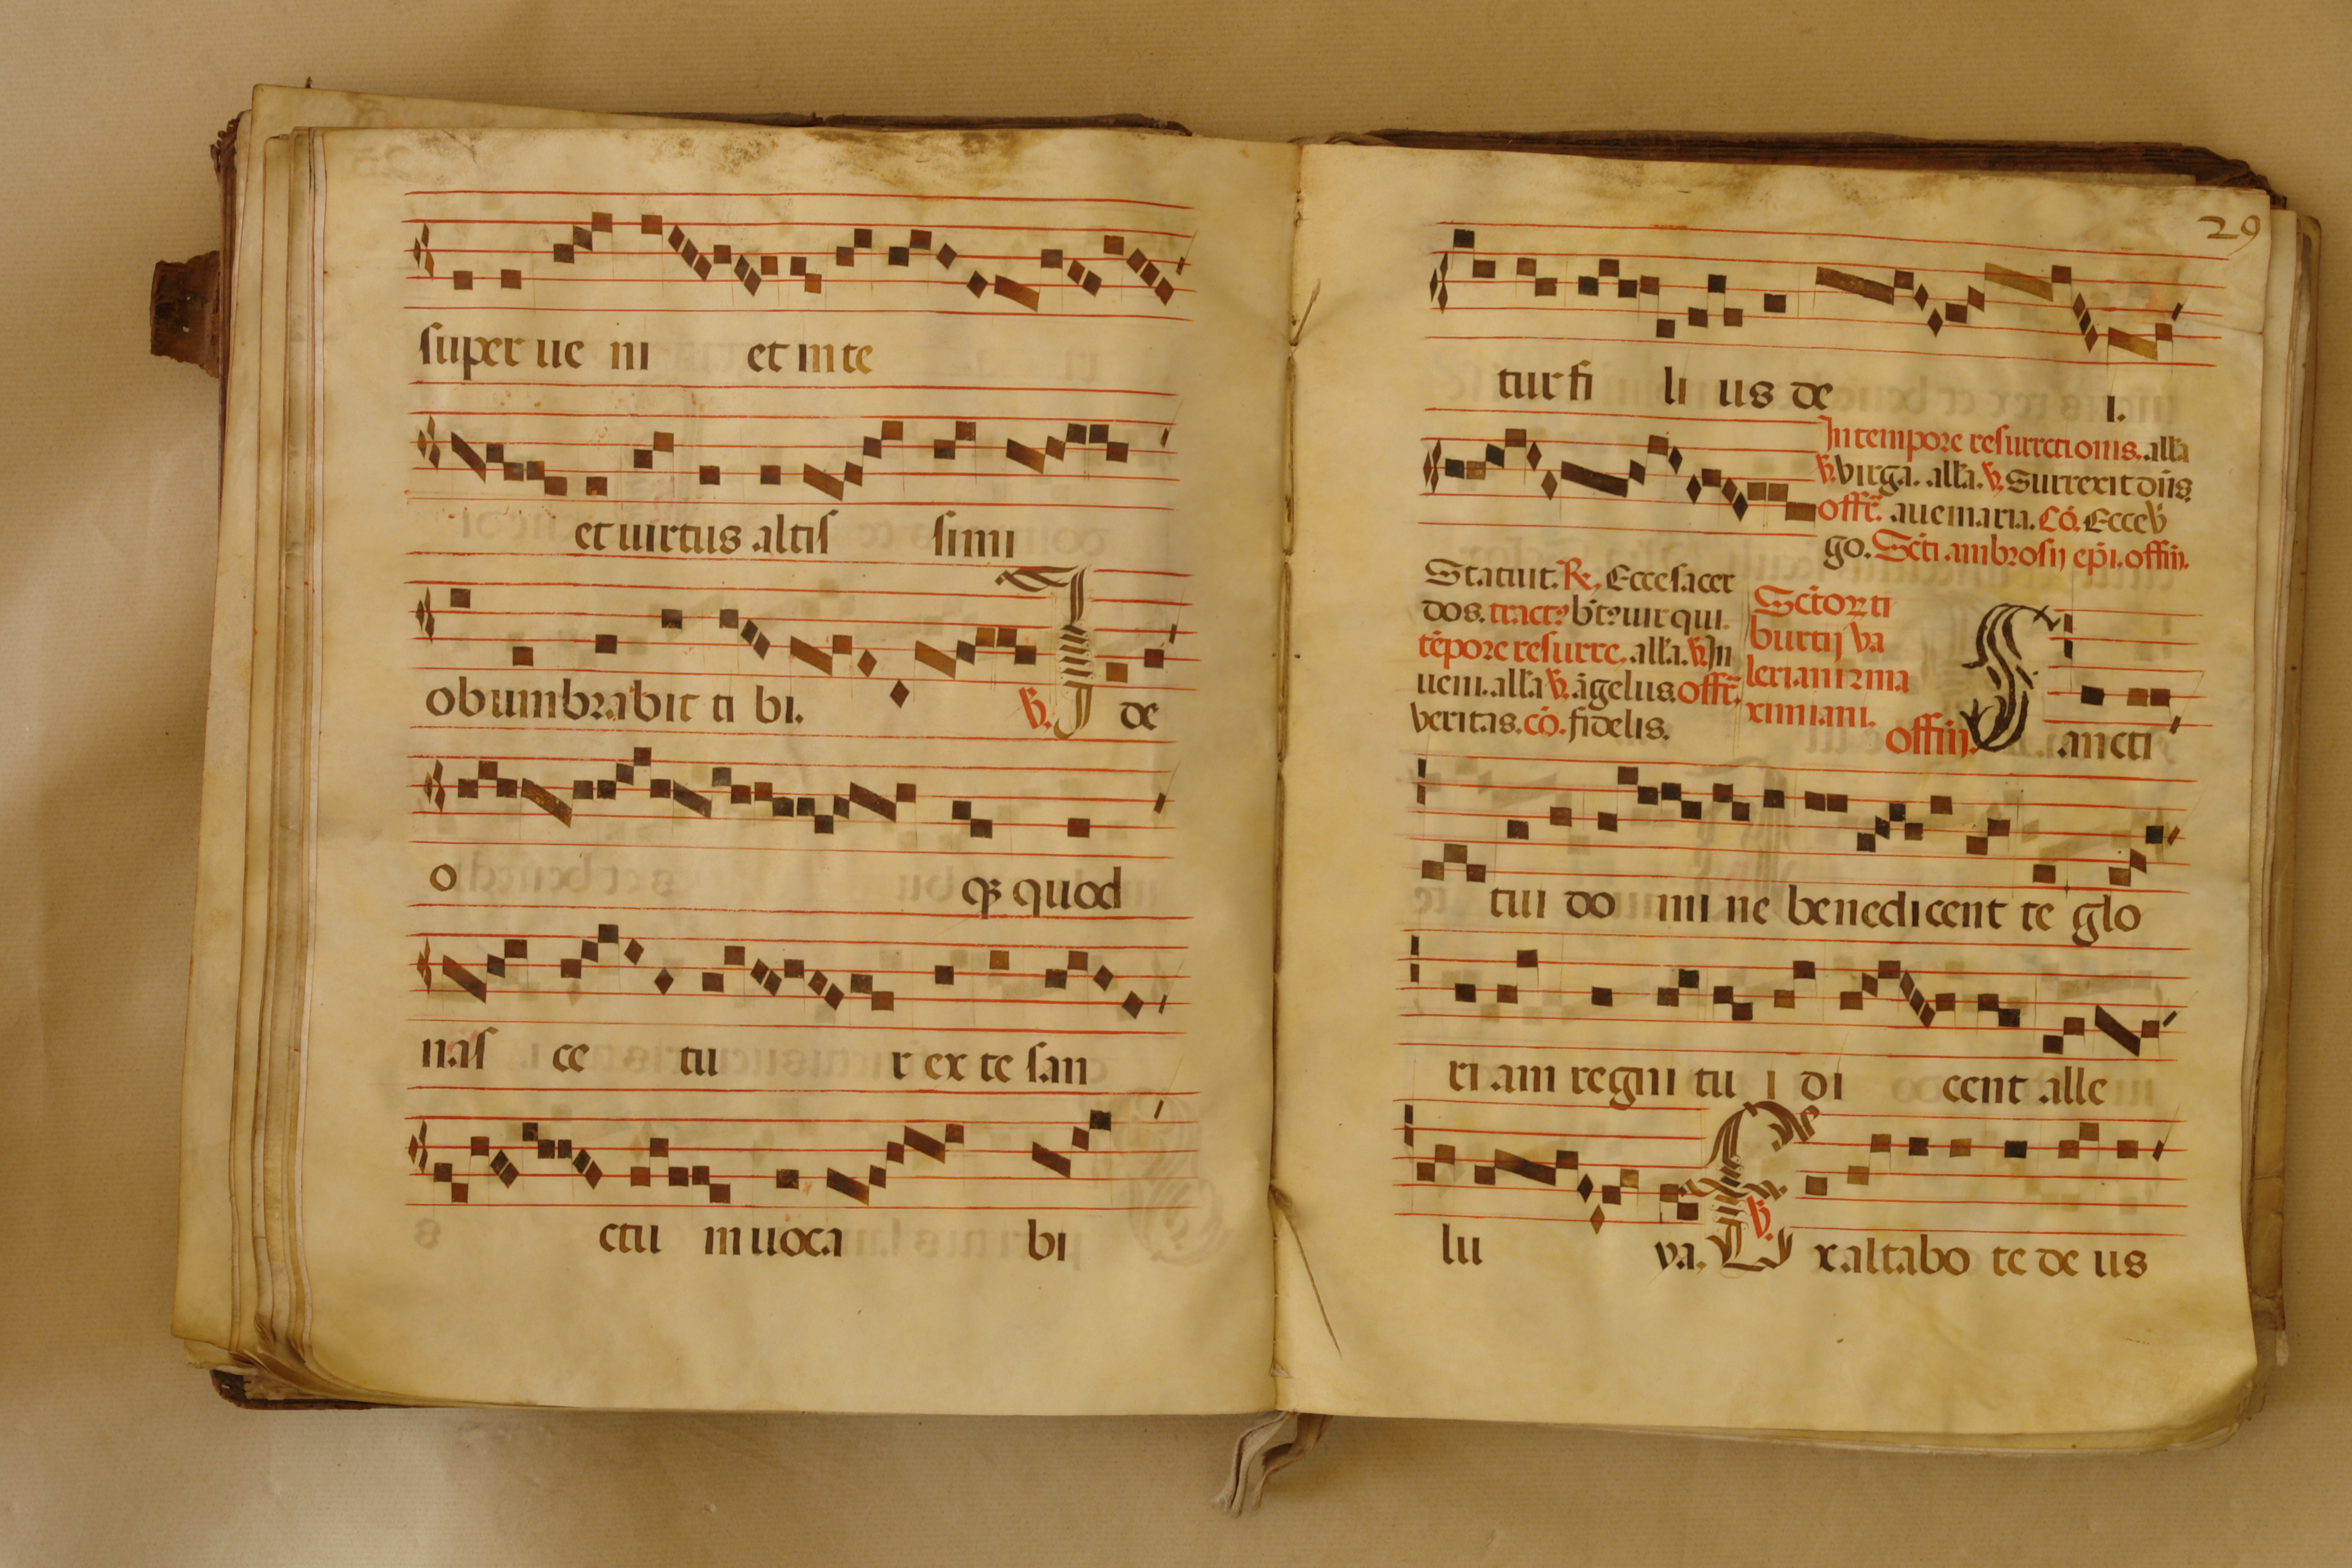 super ue ni et in te
et uirtus altis simi
obumbrabit ti bi. V. I de
o q3 quod
nas ce tu r ex te san
ctu m uoca bi
29
tur fi li us de i.
In tempore resurrectionis. alla
V. virga. alla. V. Surrexit dñs
offr̃. aue maria. Cõ. Ecce v̾
go. Scti ambrosij epi. offiñ.
Statuit. R. Ecce sacer
dos. tract9 bt9 uir qui.
tẽpore resurre. alla. V. In
ueni. alla V. ãgelus. offr̃.
veritas. cõ. fidelis.
Sctoꝝ ti
burtij va
leriani ⁊ ma
ximiani.
offiñ. S ancti
tui do mi ne benedicent te glo
ri am regni tu i di cent alle
lu ya. V. E xaltabo te de us